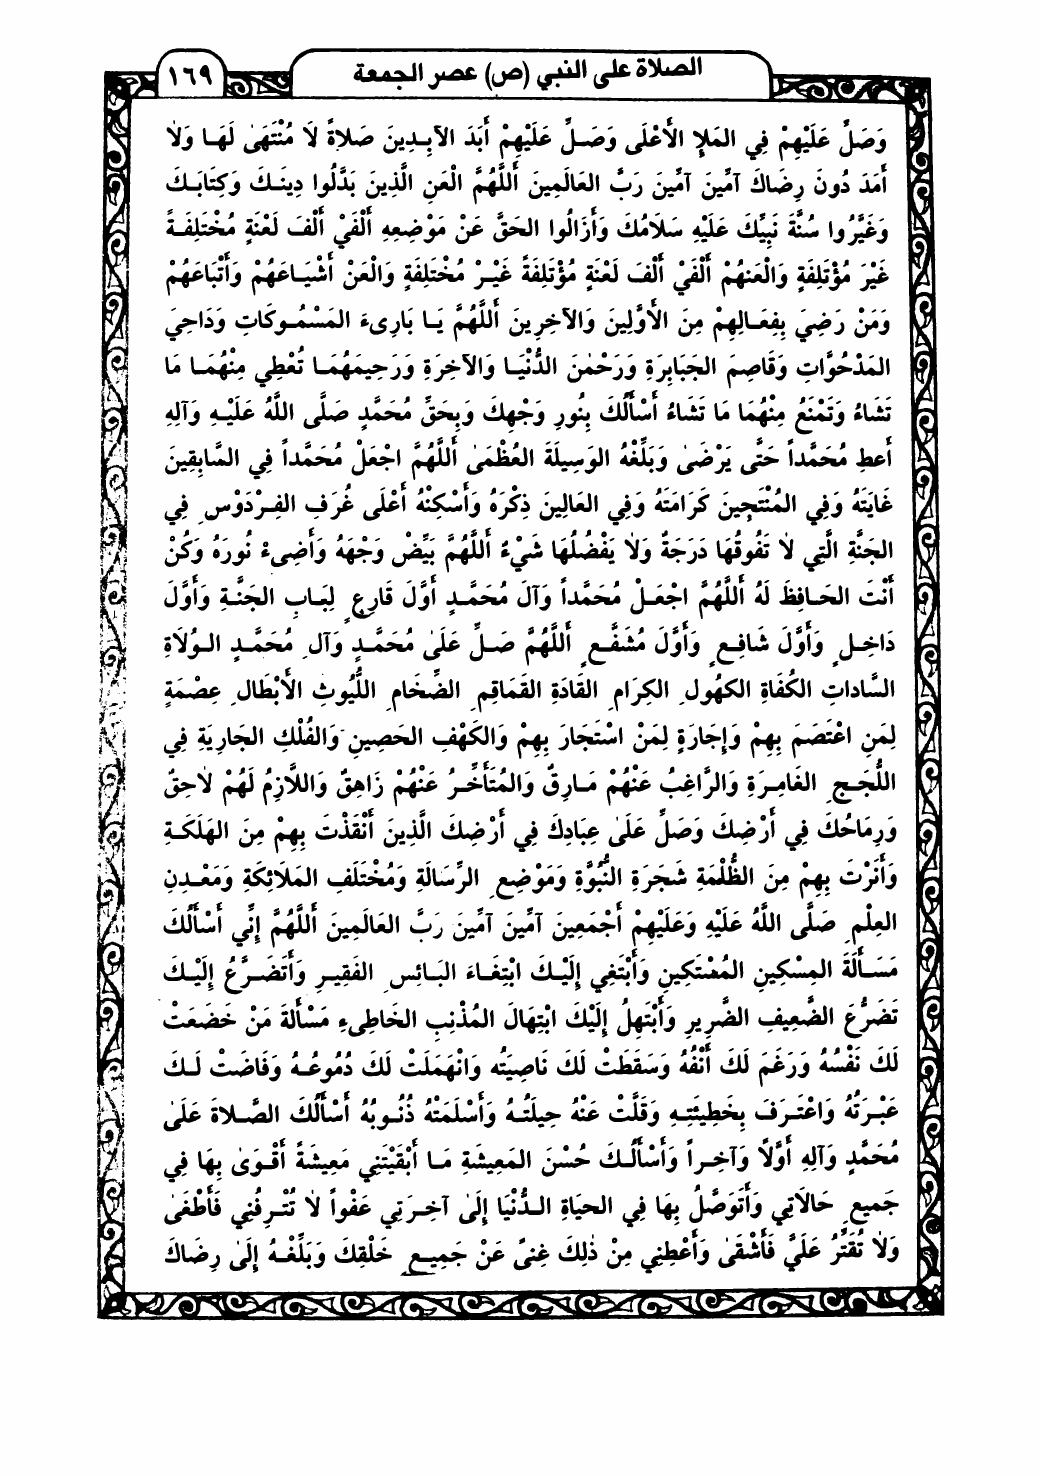 ١٦٩
الصلاة على النبي (ص) عصر الجمعة
وَصَلِّ عَلَيْهِمْ فِي المَلإِ الأَعْلَى وَصَـلِّ عَلَيْهِمْ أَبَدَ الآبِـدِينَ صَلاةً لَا مُنْتَهَىٰ لَهَـا وَلَا
أَمَدَ دُونَ رِضَاكَ آمِّينَ آمِّينَ رَبَّ العَالَمِينَ أَللَّهُمَّ الْعَنِ الَّذِينَ بَدَّلُوا دِينَـكَ وَكِتَابَـكَ
وَغَيَّرُوا سُنَّةَ نَبِيِّكَ عَلَيْهِ سَلَامُكَ وَأَزَالُوا الحَقَّ عَنْ مَوْضِعِهِ أَلْفَيْ أَلْفَ لَعْنَةٍ مُخْتَلِفَـةً
غَيْرَ مُؤْتَلِفَةٍ وَالْعَنهُمْ أَلْفَيْ أَلْفَ لَعْنَةٍ مُؤْتَلِفَةً غَيْـرَ مُخْتَلِفَةٍ وَالْعَنْ أَشْيَـاعَهُمْ وَأَتْبَاعَهُمْ
وَمَنْ رَضِيَ بِفِعَـالِهِمْ مِنَ الأَوَّلِينَ وَالآخِرِينَ أَللَّهُمَّ يَـا بَارِىءَ المَسْمُـوكَاتِ وَدَاحِيَ
المَدْحُوَّاتِ وَقَاصِمَ الجَبَابِرَةِ وَرَحْمٰنَ الدُّنْيَـا وَالآخِرَةِ وَرَحِيمَهُمَـا تُعْطِي مِنْهُمَـا مَا
تَشَاءُ وَتَمْنَعُ مِنْهُمَا مَا تَشَاءُ أَسْأَلُكَ بِنُورِ وَجْهِكَ وَبِحَقِّ مُحَمَّدٍ صَلَّى اللَّهُ عَلَيْـهِ وَآلِهِ
أَعطِ مُحَمَّداً حَتَّى يَرْضَىٰ وَبَلِّغْهُ الوَسِيلَةَ العُظْمَىٰ أَللَّهُمَّ اجْعَلْ مُحَمَّداً فِي السَّابِقِينَ
غَايَتَهُ وَفِي المُنْتَجِينَ كَرَامَتَهُ وَفِي العَالِينَ ذِكْرَهُ وَأَسْكِنْهُ أَعْلَى غُرَفِ الفِـرْدَوْسِ فِي
الجَنَّةِ الَّتِي لَا تَفُوقُهَا دَرَجَةٌ وَلَا يَفْضُلُهَا شَيْءٌ أَللَّهُمَّ بَيِّضْ وَجْهَهُ وَأَضِىءْ نُورَهُ وَكُنْ
أَنْتَ الحَـافِظَ لَهُ أَللَّهُمَّ اجْعَـلْ مُحَمَّداً وَآلَ مُحَمَّـدٍ أَوَّلَ قَارِعٍ لِبَـابِ الجَنَّـةِ وَأَوَّلَ
دَاخِـلٍ وَأَوَّلَ شَافِـعٍ وَأَوَّلَ مُشَفَّـعٍ أَللَّهُمَّ صَـلِّ عَلَىٰ مُحَمَّـدٍ وَآلِ مُحَمَّـدٍ الـوُلَاةِ
السَّادَاتِ الكُفَاةِ الكهُولِ الكِرَامِ القَادَةِ القَمَاقِمِ الضِّخَامِ اللُّيُوثِ الأَبْطَالِ عِصْمَةٍ
لِمَنِ اعْتَصَمَ بِهِمْ وَإِجَارَةٍ لِمَنْ اسْتَجَارَ بِهِمْ وَالكَهْفِ الحَصِينِ وَالفُلْكِ الجَارِيَةِ فِي
اللُّجَـجِ الغَامِـرَةِ وَالرَّاغِبُ عَنْهُمْ مَـارِقٌ وَالمُتَأَخِّـرُ عَنْهُمْ زَاهِقٌ وَاللَّازِمُ لَهُمْ لَاحِقٌ
وَرِمَاحُكَ فِي أَرْضِكَ وَصَلِّ عَلَىٰ عِبَادِكَ فِي أَرْضِكَ الَّذِينَ أَنْقَذْتَ بِهِمْ مِنَ الهَلَكَـةِ
وَأَنَرْتَ بِهِمْ مِنَ الظُّلْمَةِ شَجَرَةِ النُّبُوَّةِ وَمَوْضِعِ الرِّسَالَةِ وَمُخْتَلَفِ المَلَائِكَةِ وَمَعْـدِنِ
العِلْمِ صَلَّى اللَّهُ عَلَيْهِ وَعَلَيْهِمْ أَجْمَعِينَ آمِّينَ آمِّينَ رَبَّ العَالَمِينَ أَللَّهُمَّ إِنِّي أَسْأَلُكَ
مَسْـأَلَةَ المِسْكِينِ المُسْتَكِينِ وَأَبْتَغِي إِلَيْـكَ ابْتِغَـاءَ البَـائِسِ الفَقِيـرِ وَأَتَضَـرَّعُ إِلَيْـكَ
تَضَرُّعَ الضَّعِيفِ الضَّرِيرِ وَأَبْتَهِلُ إِلَيْكَ ابْتِهَالَ المُذْنِبِ الخَاطِىءِ مَسْأَلَةَ مَنْ خَضَعَتْ
لَكَ نَفْسُهُ وَرَغَمَ لَكَ أَنْفُهُ وَسَقَطَتْ لَكَ نَاصِيَتُه وَانْهَمَلَتْ لَكَ دُمُوعُـهُ وَفَاضَتْ لَـكَ
عَبْـرَتُهُ وَاعْتَـرَفَ بِخَطِيئَتِـهِ وَقَلَّتْ عَنْهُ حِيلَتُـهُ وَأَسْلَمَتْهُ ذُنُـوبُهُ أَسْأَلُكَ الصَّـلاةَ عَلَىٰ
مُحَمَّدٍ وَآلِهِ أَوَّلًا وَآخِـراً وَأَسْأَلُـكَ حُسْنَ المَعِيشَةِ مَـا أَبْقَيْتَنِي مَعِيشَةً أَقْـوَىٰ بِهَا فِي
جَمِيعِ حَالَاتِي وَأَتَوَصَّلُ بِهَا فِي الحَيَاةِ الـدُّنْيَا إِلَىٰ آخِـرَتِي عَفْواً لَا تُتْـرِفُنِي فَأَطْغَىٰ
وَلَا تُقَتِّرُ عَلَيَّ فَأَشْقَىٰ وَأَعْطِنِي مِنْ ذٰلِكَ غِنىً عَنْ جَمِيـعِ خَلْقِكَ وَبَلِّغْـهُ إِلَىٰ رِضَاكَ